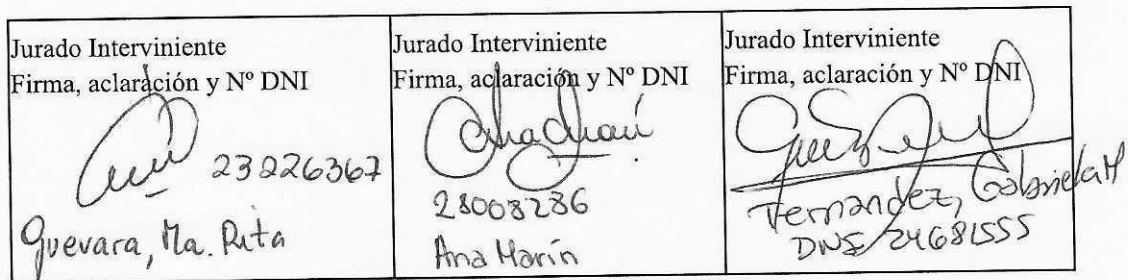 Jurado Interviniente
Firma, aclaración y Nº DNI
23226367
Guevara, Ma. Rita
Jurado Interviniente
Firma, aclaración y Nº DNI
28008286
Ana Marín
Jurado Interviniente
Firma, aclaración y Nº DNI
Fernandez, Gabriela M
DNI 24681555